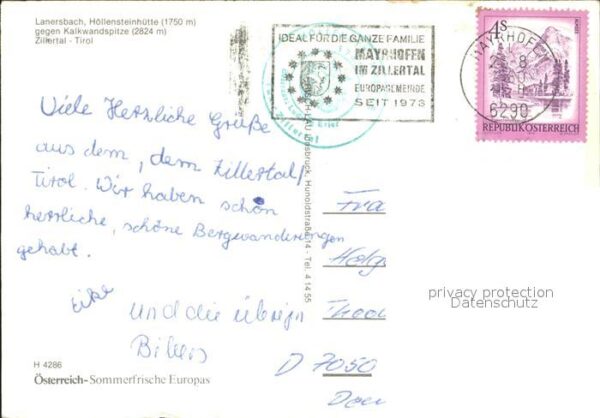 Lanersbach, Höllensteinhütte (1750 m)
gegen Kalkwandspitze (2824 m)
Zillertal - Tirol
IDEAL FÜR DIE GANZE FAMILIE
MAYRHOFEN
IM ZILLERTAL
EUROPAGEMEINDE
SEIT 1973
MAYRHOFEN
6290
4S
REPUBLIK ÖSTERREICH
Viele Herzliche Grüße
aus dem, dem Zillertal/
Tirol. Wir haben schön
herrliche, schöne Bergwanderungen
gehabt.
Eike
und die übrigen
Bikers
Innsbruck, Hunoldstraße 14 - Tel. 4 14 55
Fra
Holg
D 7050
privacy protection
Datenschutz
H 4286
Österreich-Sommerfrische Europas